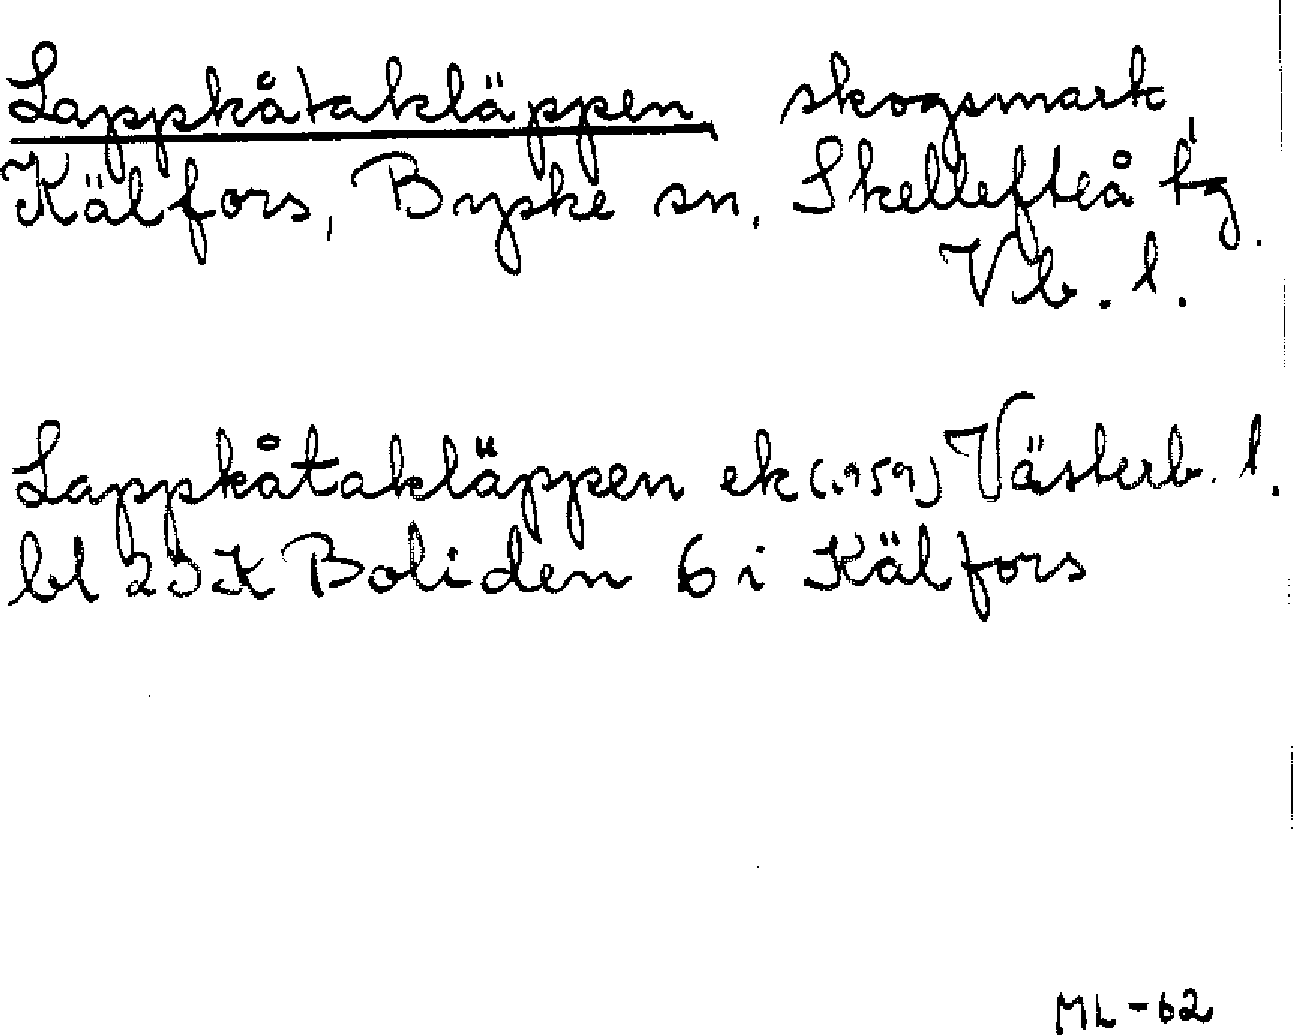 Lappkåtakläppen, skogsmark,
Kälfors, Byske sn. Skellefteå tg.
Vb. l.
Lappkåtakläppen ek (1959) Västerb. l.
bl 23 K Boliden 6 i Kälfors
ML-62